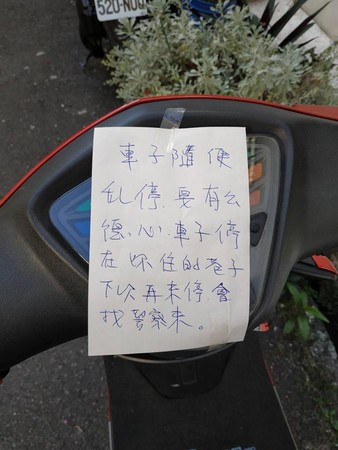 520-NOU
車子隨便
乱停.要有公
德心.車子停
在妳住的巷子
下次再来停會
找警察来。